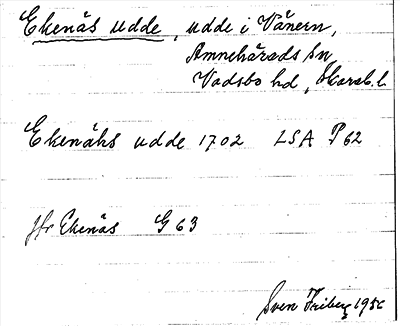 Ekenäs udde, udde i Vänern,
Amnehärads sn
Vadsbo hd, Skarab. l.
Ekenähs udde 1702 LSA P 62
Jfr Ekenäs G 63
Sven Friberg 1956